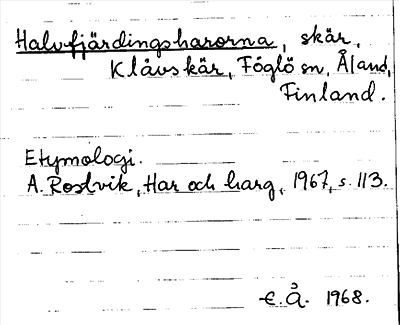 Halvfjärdingsharorna, skär,
Klåvskär, Föglö sn, Åland,
Finland.
Etymologi.
A. Rostvik, Har och harg, 1967, s. 113.
E. Å. 1968.